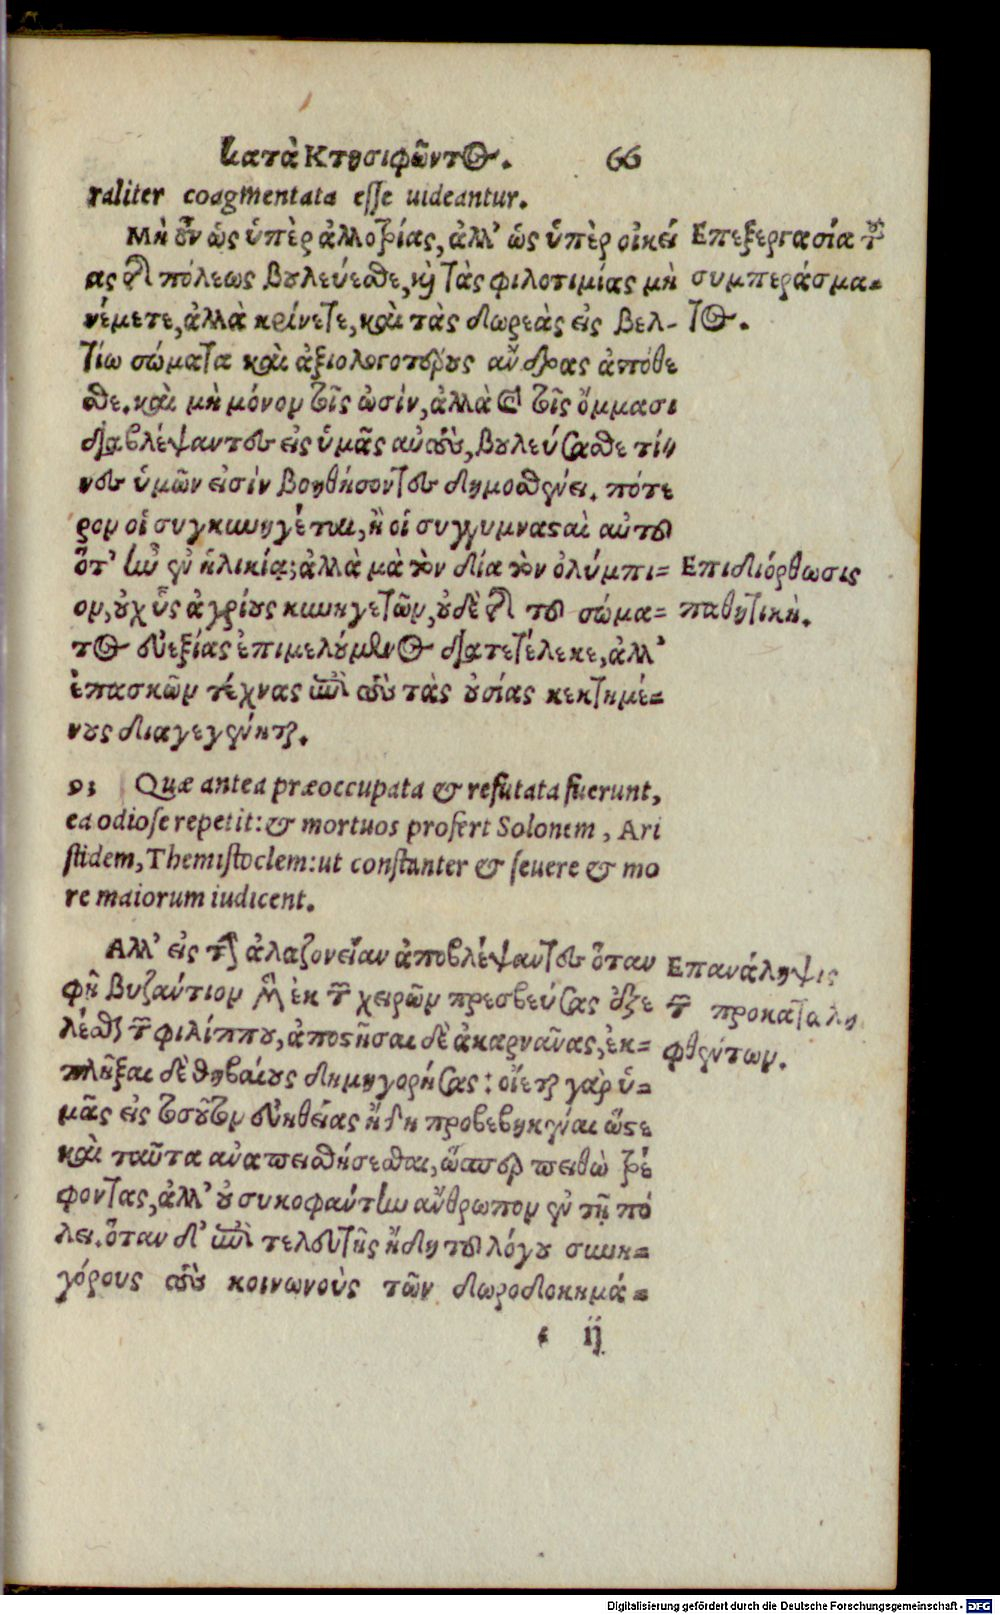 κατὰ Κτησιφῶντος. 66
raliter coagmentata esse uideantur.
Μὴ οὖν ὡς ὑπὲρ ἀλλοτρίας, ἀλλ’ ὡς ὑπὲρ οἰκεί
ας τῆς πόλεως βουλεύεσθε, καὶ τὰς φιλοτιμίας μὴ
νέμετε, ἀλλὰ κρίνετε, καὶ τὰς δωρεὰς εἰς βελ-
τίω σώματα καὶ ἀξιολογοτέρους ἄνδρας ἀπόθε
σθε. καὶ μὴ μόνον τοῖς ὠσίν, ἀλλὰ καὶ τοῖς ὄμμασι
διαβλέψαντες εἰς ὑμᾶς αὐτοὺς, βουλεύσασθε τί
νες ὑμῶν εἰσὶν βοηθήσοντες δημοσθένει. πότε
ρον οἱ συγκυνηγέται, ἢ οἱ συγγυμνασταὶ αὐτοῦ
ὅτ’ ἦν ἐν ἡλικίᾳ; ἀλλὰ μὰ τὸν δία τὸν ὀλύμπι=
ον, οὐχ ὗς ἀγρίους κυνηγετῶν, οὐδὲ τῆς τοῦ σώμα=
τος εὐεξίας ἐπιμελούμενος διατετέλεκε, ἀλλ’
ἐπασκῶν τέχνας ἐπὶ τοὺς τὰς οὐσίας κεκτημέ=
νους διαγεγένηται.
Επεξεργασία τοῦ
συμπεράσμα=
τος.
Επιδιόρθωσις
παθητικὴ.
93 Quæ antea præoccupata & refutata fuerunt,
ea odiose repetit: & mortuos profert Solonem, Ari
stidem, Themistoclem: ut constanter & seuere & mo
re maiorum iudicent.
Αλλ’ εἰς τὴν ἀλαζονείαν ἀποβλέψαντες ὅταν
φῇ βυζάντιον μὲν ἐκ τῶν χειρῶν πρεσβεύσας ἐξε
λέσθαι τῶν φιλίππου, ἀποστῆσαι δὲ ἀκαρνᾶνας, ἐκ=
πλῆξαι δὲ θηβαίους δημηγορήσας: οἴεται γὰρ ὑ=
μᾶς εἰς τοσοῦτον εὐηθείας ἤδη προβεβηκέναι ὥστε
καὶ ταῦτα ἀναπεισθήσεσθαι, ὥσπερ πειθὼ τρέ
φοντας, ἀλλ’ οὐ συκοφάντην ἄνθρωπον ἐν τῇ πό
λει. ὅταν δ’ ἐπὶ τελευτῆς ἤδη τοῦ λόγου συνη=
γόρους τοὺς κοινωνοὺς τῶν δωροδοκημά=
Επανάληψις
τῶν προκαταλη
φθέντων.
ij